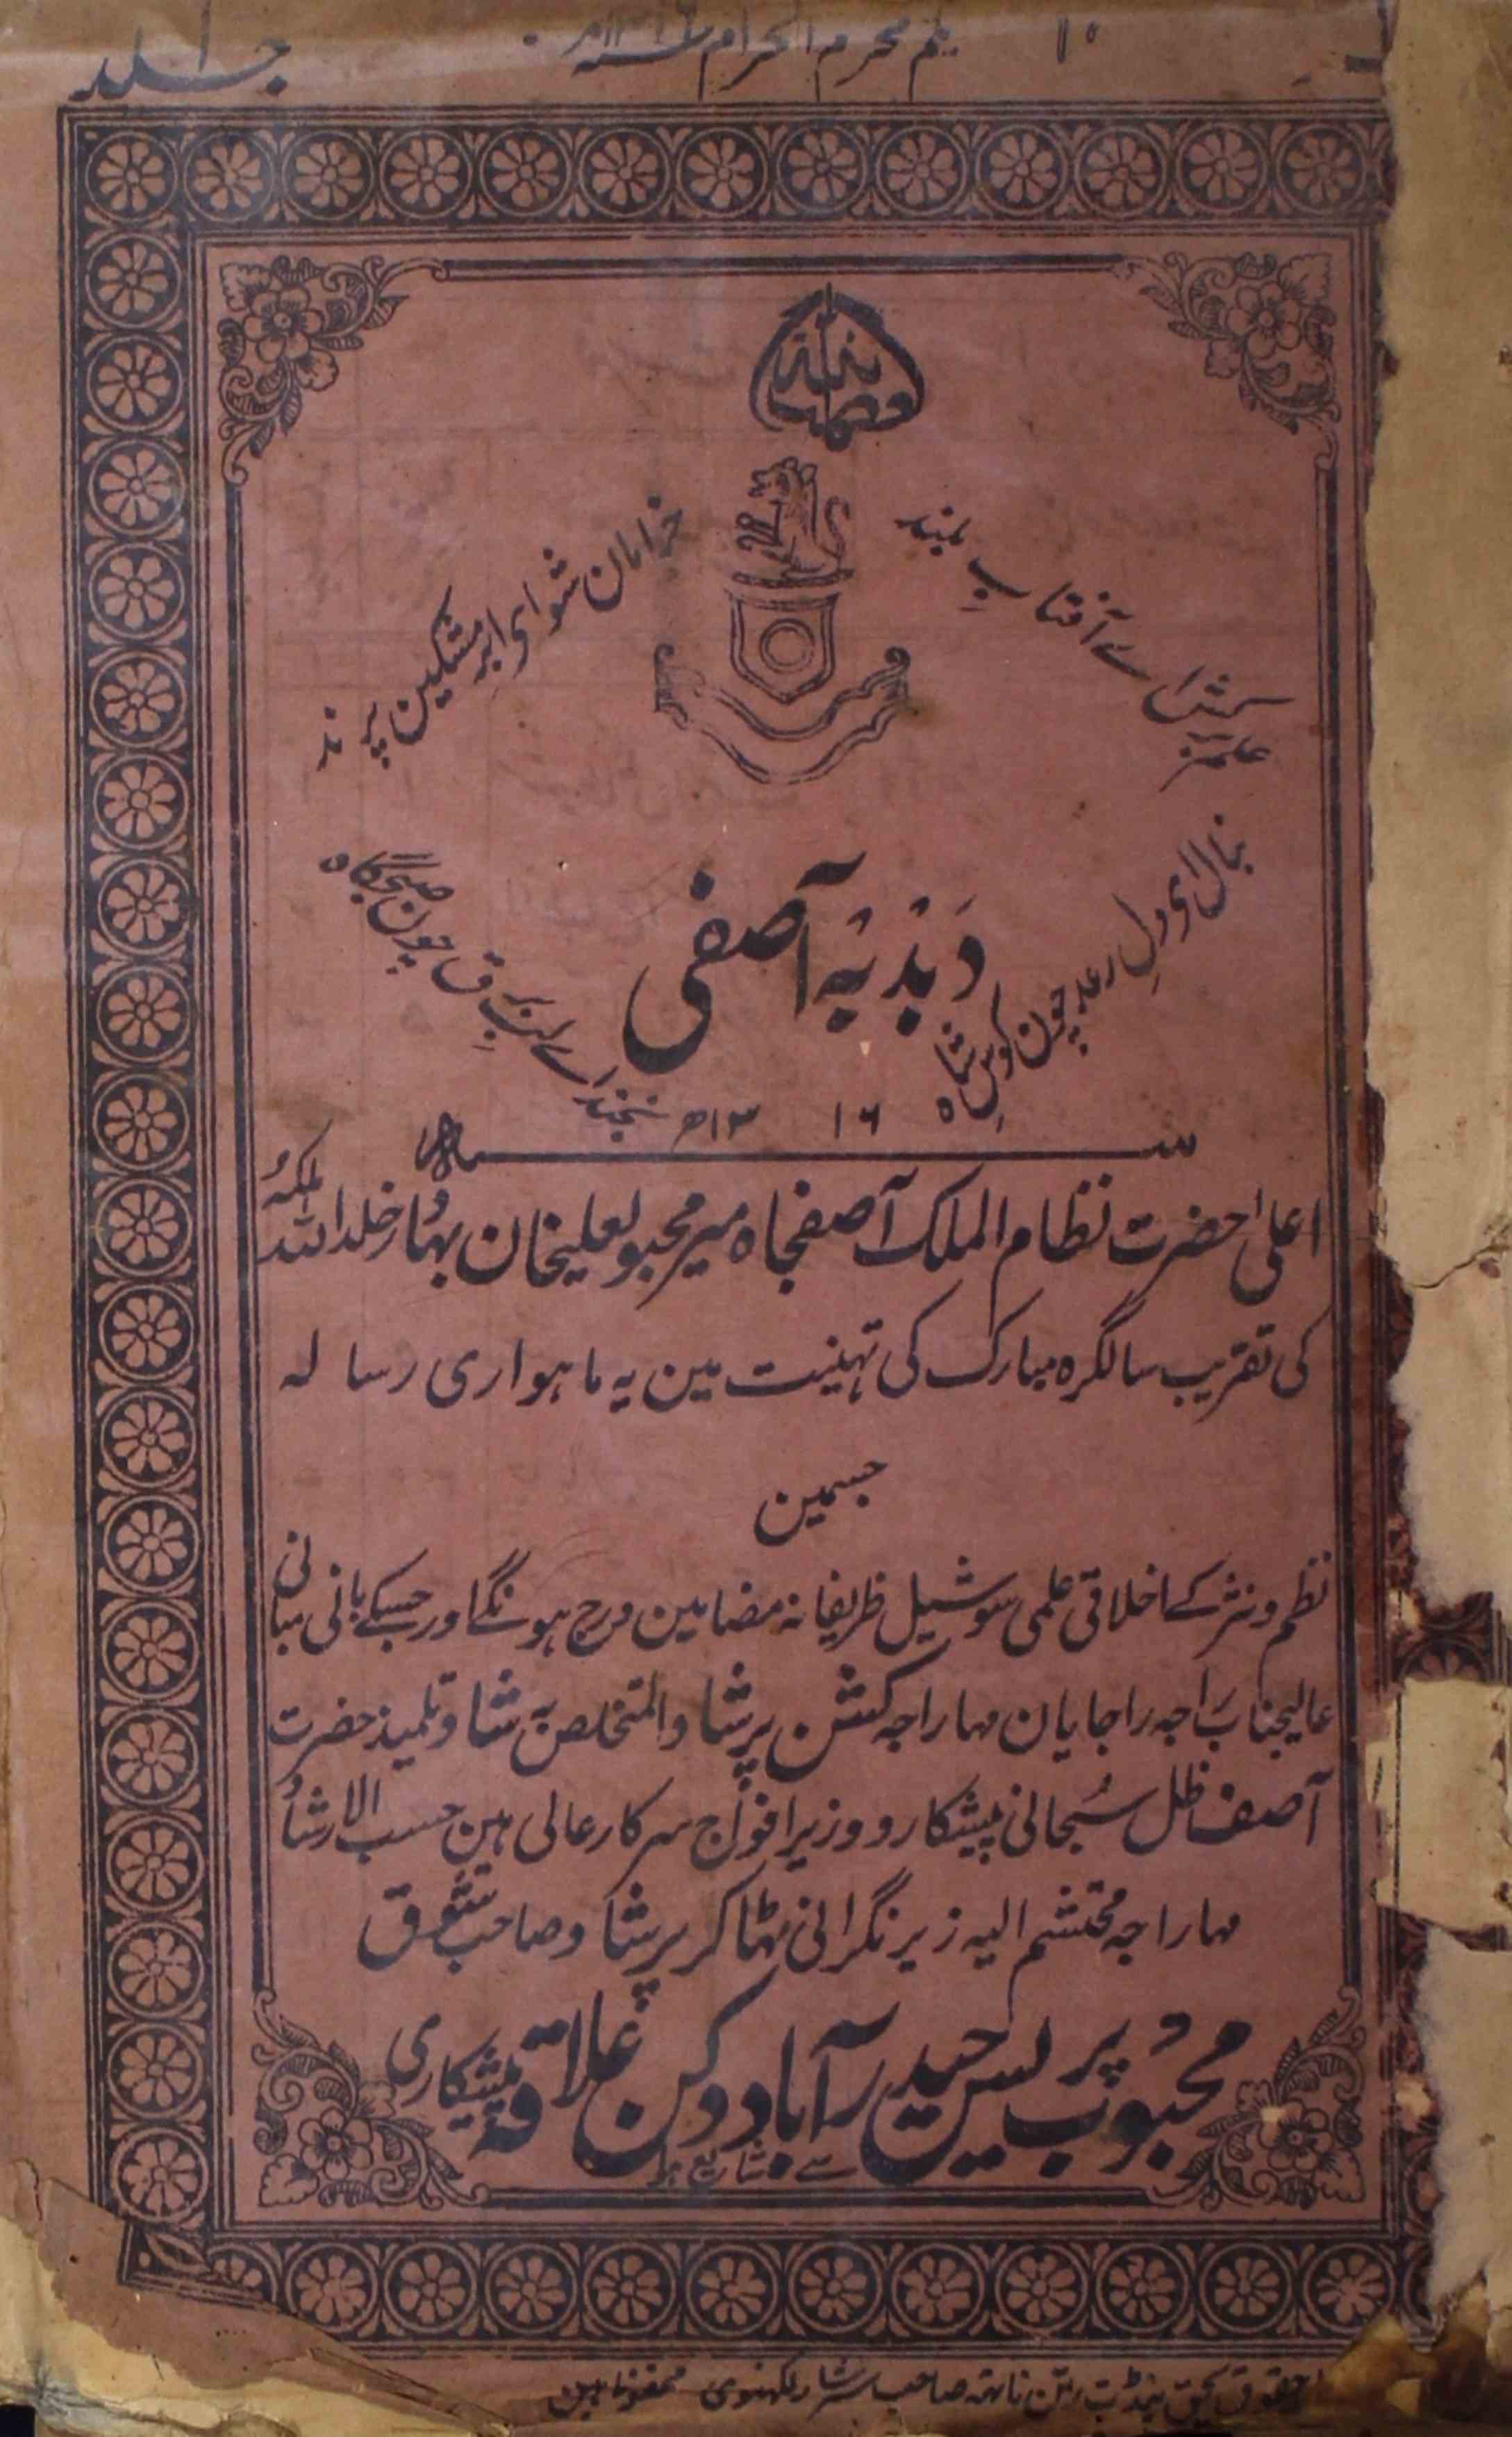 جلد ۱
۱۰
یکم محرم الحرام
العظمۃ للہ
علم برکش اے آفتاب بلند
خرامان شو ای ابر مشکین پرند
بنال ای دل رعد چون کوس شاہ
بخند اے لب برق چون صبحگاہ
دَبْدَبۂ آصفی
۱۳۱۶ھ
اعلیٰ حضرت نظام الملک آصفجاہ میر محبوبعلیخان بہادر خلد اللہ ملکہُ
کی تقریب سالگرہ مبارک کی تہنیت مین یہ ماہواری رسالہ
جسمین
نظم ونثر کے اخلاقی علمی سوشیل ظریفانہ مضامین درج ہونگے اور جسکے بانی مبانی
عالیجناب راجہ راجایان مہاراجہ کشن پرشاد المتخلص بہ شاد تلمیذ حضرت
آصف ظل سُبحانی پیشکار و وزیر افواج سرکار عالی ہین حسب الارشاد
مہاراجہ محتشم الیہ زیر نگرانی ٹھاکر پرشاد صاحب شوق
محبُوب پریس حیدرآباد دکن علاقۂ پیشکاری
سے شایع ہوا
حقوق بحق پنڈت رتن ناتھ صاحب سرشار لکھنوی محفوظ ہین